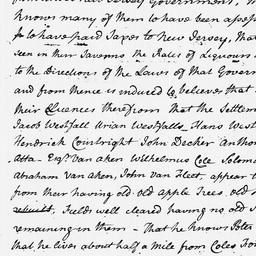 knows many of them to have been
to have paid Taxes to New Jersey, that
seen in their Taverns the Rates of Liquours
to the Directions of the Laws of that Govern
and from thence is induced to believe that
their Licences therefrom That the Settlem
Jacob Westfall Urian Westfalls, Hans West
Hendrick Courtright John Decker Anthon
Atta- Esqr. Van aken Wilhelmus Cole Solomo
Abraham Van aken, John Van Fleet, appear t
from their having old old apple Trees, old
Fields well cleared having no old S
remaining in them - That he knows Peter
that he lives about half a Mile from Coles For